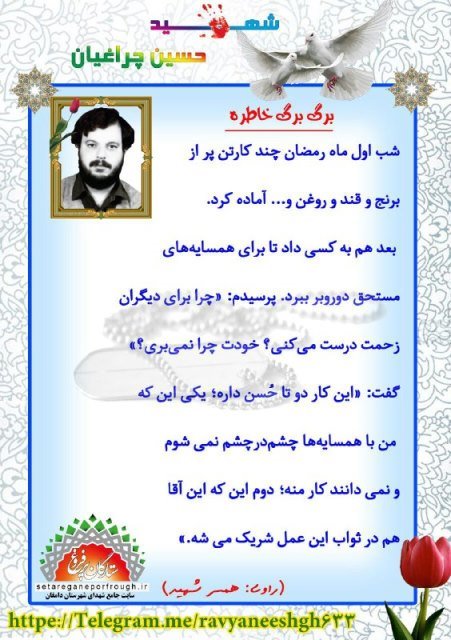 شهید
حسین چراغیان
برگی برگی خاطره
شب اول ماه رمضان چند کارتن پر از
برنج و قند و روغن و... آماده کرد.
بعد هم به کسی داد تا برای همسایه‌های
مستحق دوروبر ببرد. پرسیدم: «چرا برای دیگران
زحمت درست می‌کنی؟ خودت چرا نمی‌بری؟»
گفت: «این کار دو تا حُسن داره؛ یکی این که
من با همسایه‌ها چشم‌درچشم نمی شوم
و نمی دانند کار منه؛ دوم این که این آقا
هم در ثواب این عمل شریک می شه.»
(راوی: همسر شهید)
ستارگان پرفروغ
setareganeporfrough.ir
سایت جامع شهدای شهرستان دامغان
https://Telegram.me/ravyaneeshgh۶۳۳